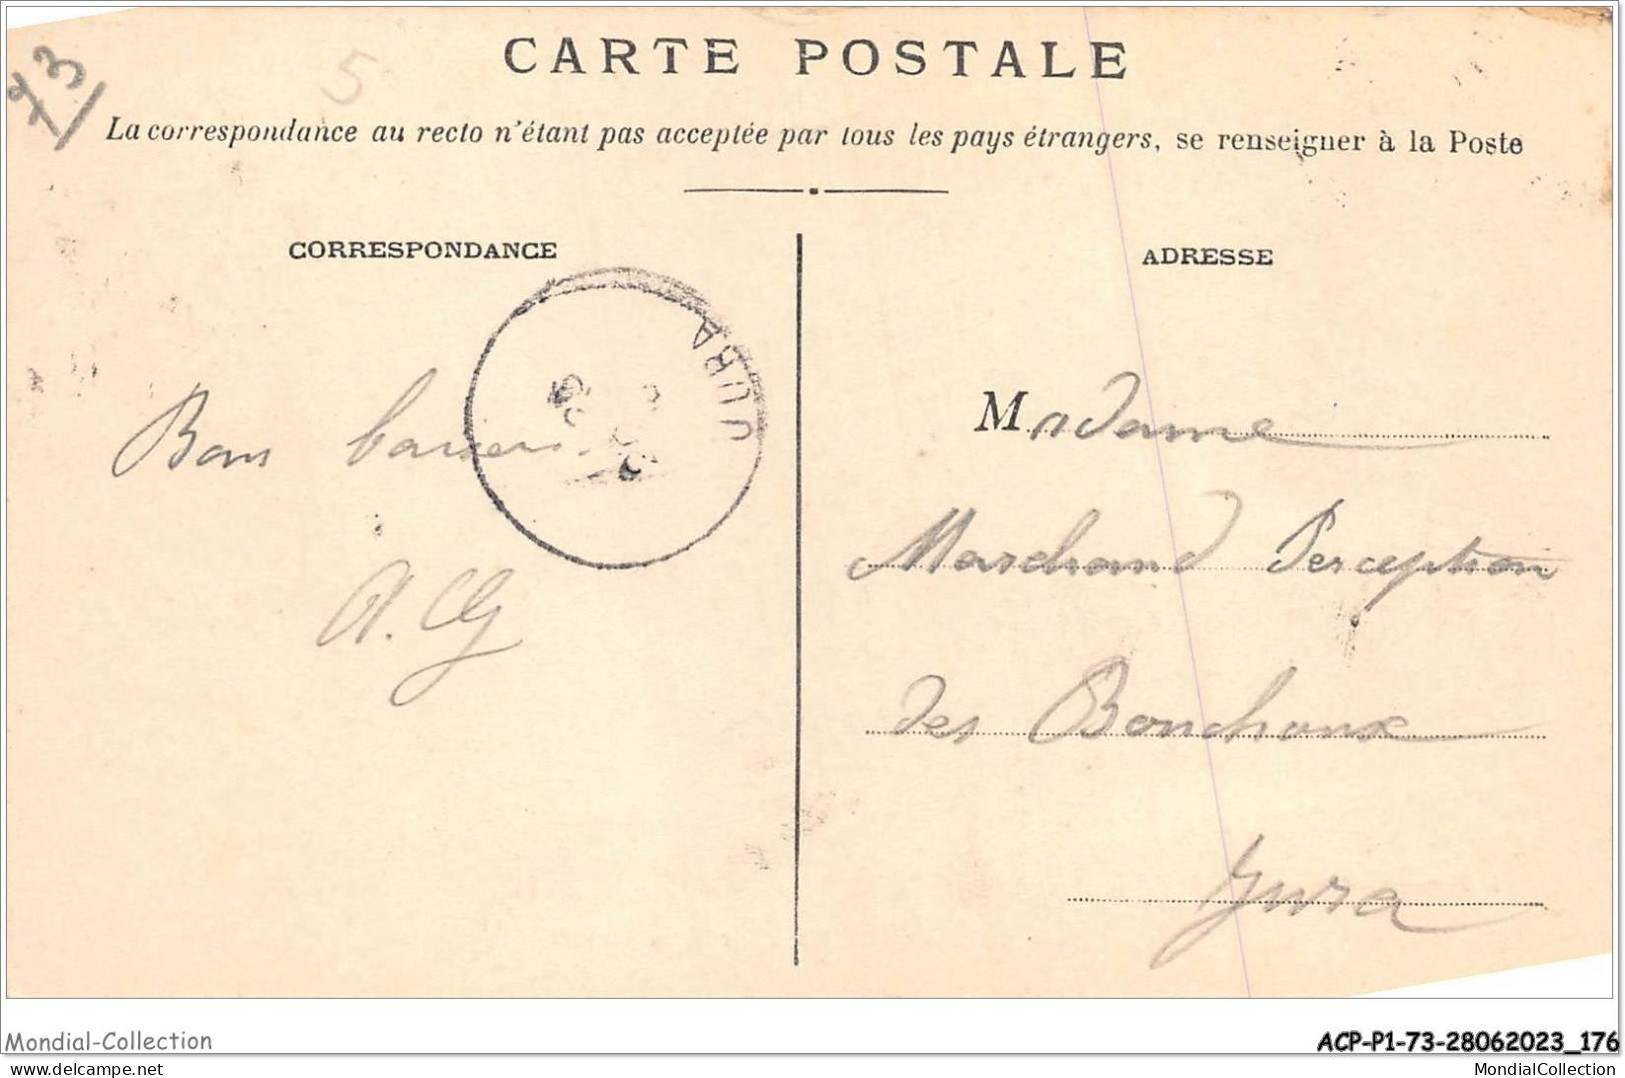 73
5
CARTE POSTALE
La correspondance au recto n'étant pas acceptée par tous les pays étrangers, se renseigner à la Poste
CORRESPONDANCE
ADRESSE
JURA
Madame
Bons baisers
Marchand Perception
A. Cly
des Bouchoux
Jura
Mondial-Collection
ACP-P1-73-28062023_176
delcampe.net
MondialCollection